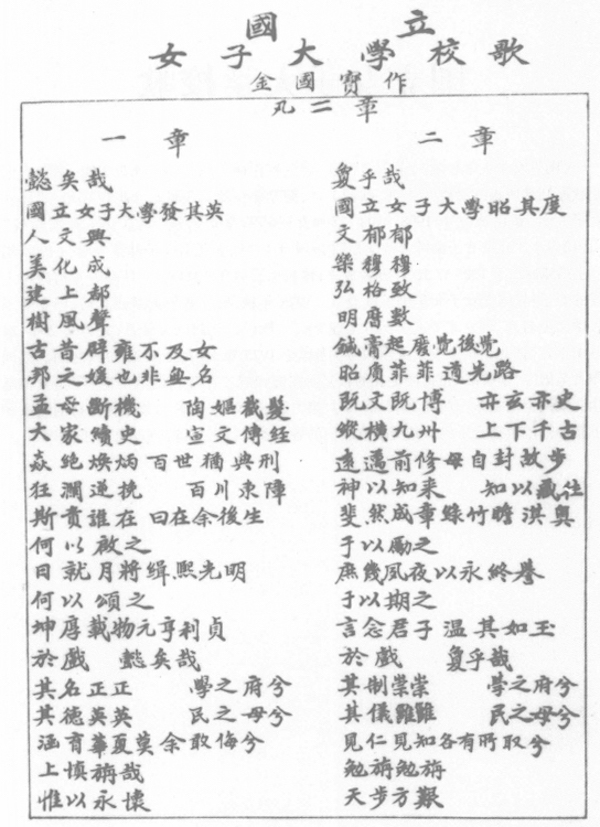 國立
女子大學校歌
金國寶作
凡二章
一章
懿矣哉
國立女子大學發其英
人文興
美化成
建上都
樹風聲
古昔辟雍不及女
邦之媛也非無名
孟母斷機 陶嫗截髮
大家續史 宣文傳經
焱絶煥炳百世猶典刑
狂瀾逆挽 百川東障
斯責誰在 曰在余後生
何以啟之
日就月將緝熙光明
何以頌之
坤厚載物元亨利貞
於戲 懿矣哉
其名正正 學之府兮
其德英英 民之母兮
涵育華夏莫余敢侮兮
上慎旃哉
惟以永懷
二章
敻乎哉
國立女子大學昭其度
文郁郁
樂穆穆
弘格致
明曆數
鍼膏起廢覺後覺
昭質菲菲道先路
既文既博 亦玄亦史
縱橫九州 上下千古
遠邁前修毋自封故步
神以知來 知以藏往
斐然成章綠竹瞻淇奧
于以勵之
庶幾夙夜以永終譽
于以期之
言念君子溫其如玉
於戲 敻乎哉
其制崇崇 學之府兮
其儀雝雝 民之母兮
見仁見知各有所取兮
勉旃勉旃
天步方艱